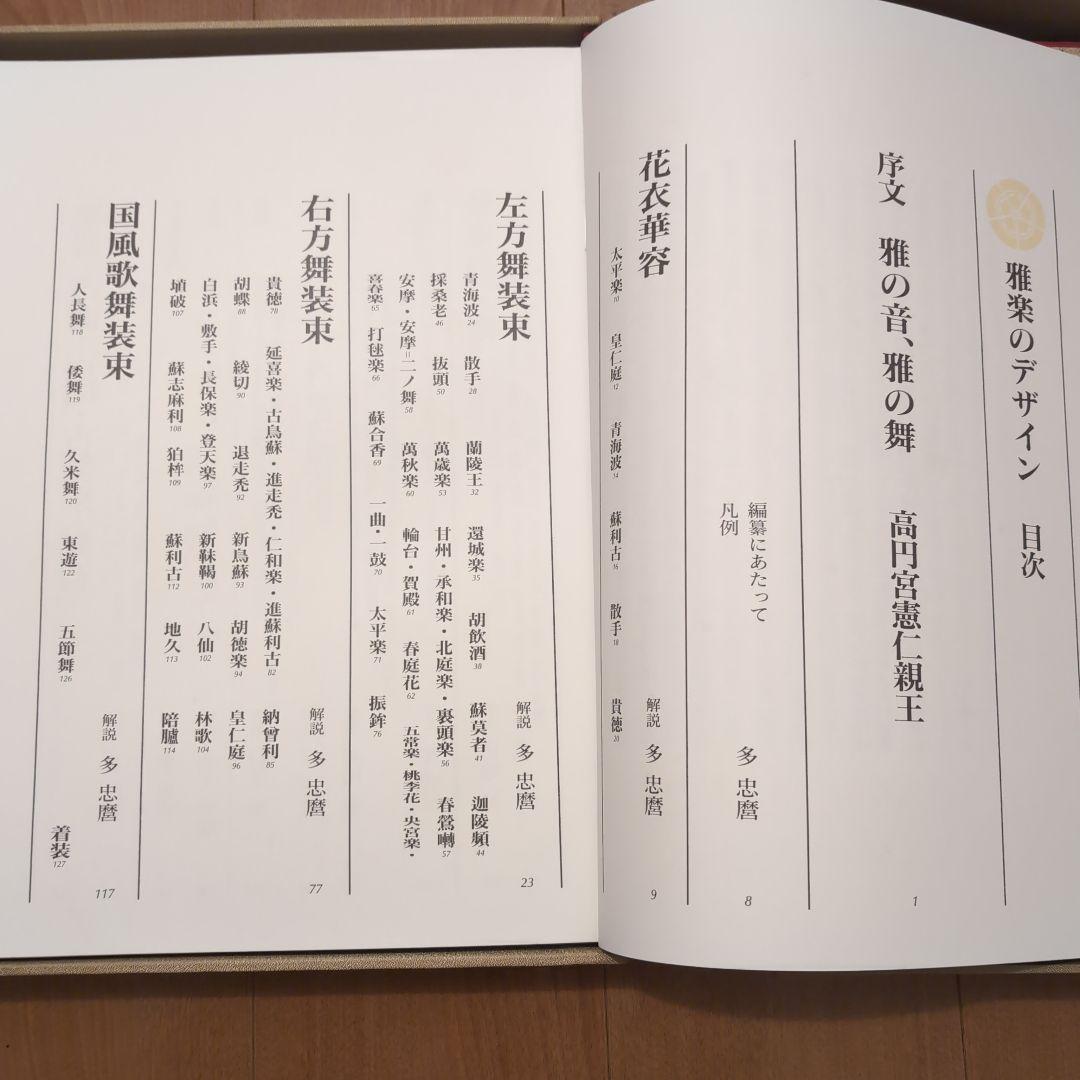 雅楽のデザイン　目次
序文　雅の音、雅の舞　高円宮憲仁親王　1
編纂にあたって　多 忠麿　8
凡例
花衣華容　解説　多 忠麿　9
太平楽10　皇仁庭12　青海波14　蘇利古16　散手18　貴徳20
左方舞装束　解説　多 忠麿　23
青海波24　散手28　蘭陵王32　還城楽35　胡飲酒38　蘇莫者41　迦陵頻44
採桑老46　抜頭50　萬歳楽53　甘州・承和楽・北庭楽・裏頭楽56　春鶯囀57
安摩・安摩=二ノ舞58　萬秋楽60　輪台・賀殿61　春庭花62　五常楽・桃李花・央宮楽・
喜春楽65　打毬楽66　蘇合香69　一曲・一鼓70　太平楽71　振鉾76
右方舞装束　解説　多 忠麿　77
貴徳78　延喜楽・古鳥蘇・進走禿・仁和楽・進蘇利古82　納曾利85
胡蝶88　綾切90　退走禿92　新鳥蘇93　胡徳楽94　皇仁庭96
白浜・敷手・長保楽・登天楽97　新靺鞨100　八仙102　林歌104
埴破107　蘇志麻利108　狛桙109　蘇利古112　地久113　陪臚114
国風歌舞装束　解説　多 忠麿　117
人長舞118　倭舞119　久米舞120　東遊122　五節舞126　着装127